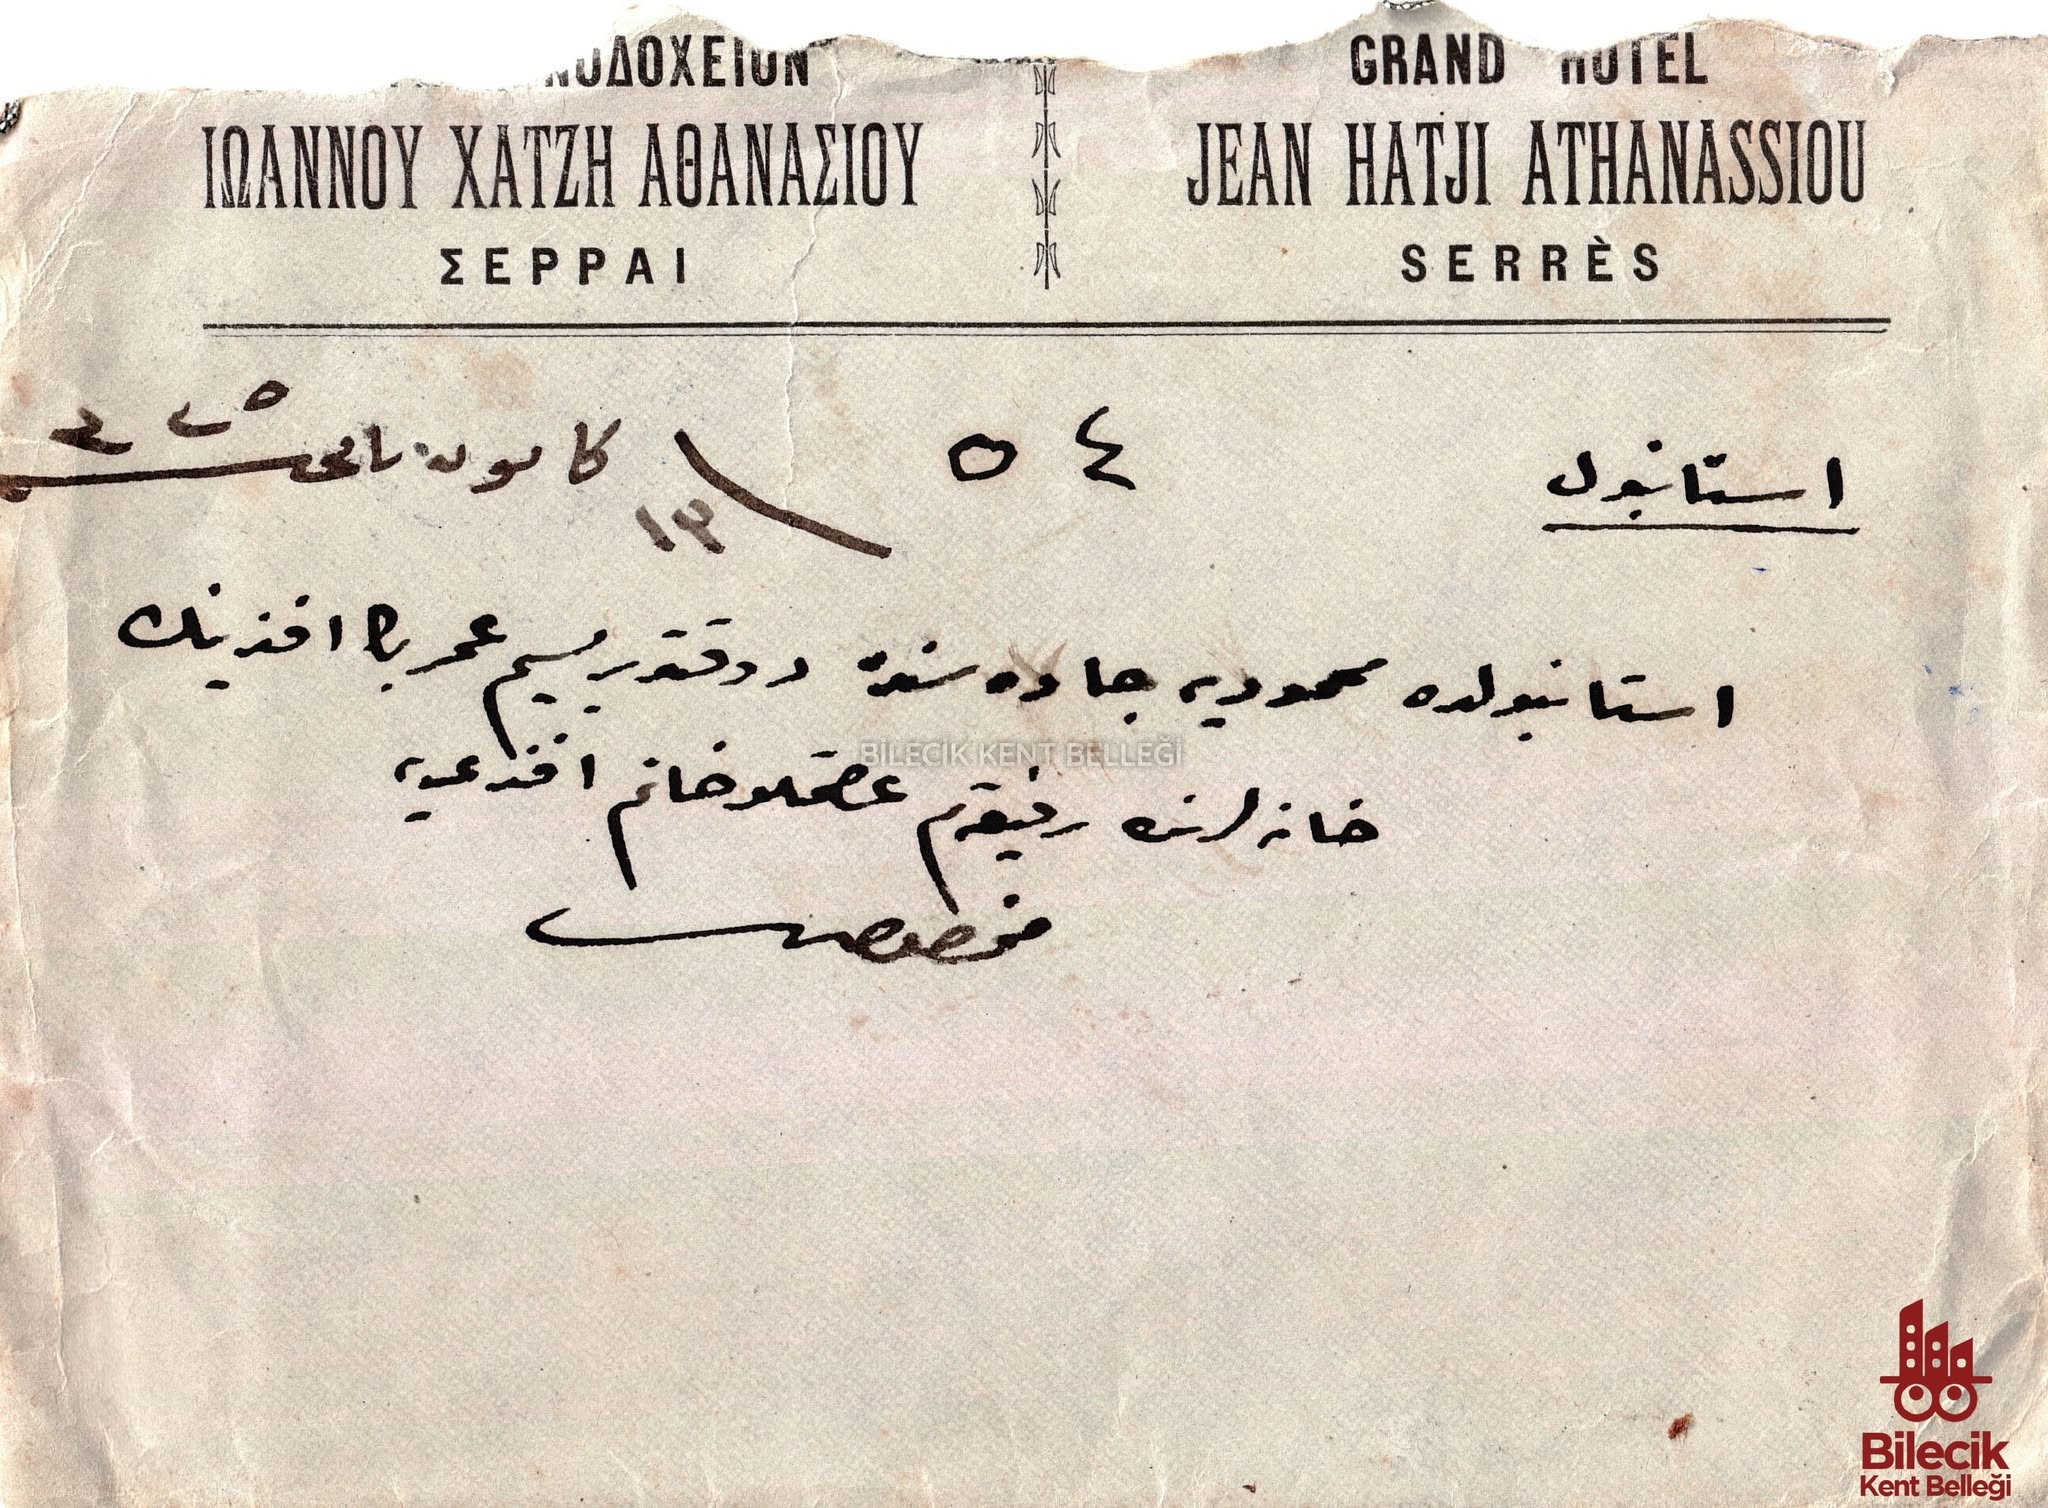 ΝΟΔΟΧΕΙΟΝ
ΙΩΑΝΝΟΥ ΧΑΤΖΗ ΑΘΑΝΑΣΙΟΥ
ΣΕΡΡΑΙ
GRAND HOTEL
JEAN HATJI ATHANASSIOU
SERRÈS
استانبول
٤ ٥
١٣ كانون ثانى سنه ٣٢٥
استانبولده محموديه جاده سنده دوقتور عمر افندينك
خانه لرنده رفيقه م عصمتلو خانم افندى يه
مخصوصدر
BİLECİK KENT BELLEĞİ
Bilecik
Kent Belleği